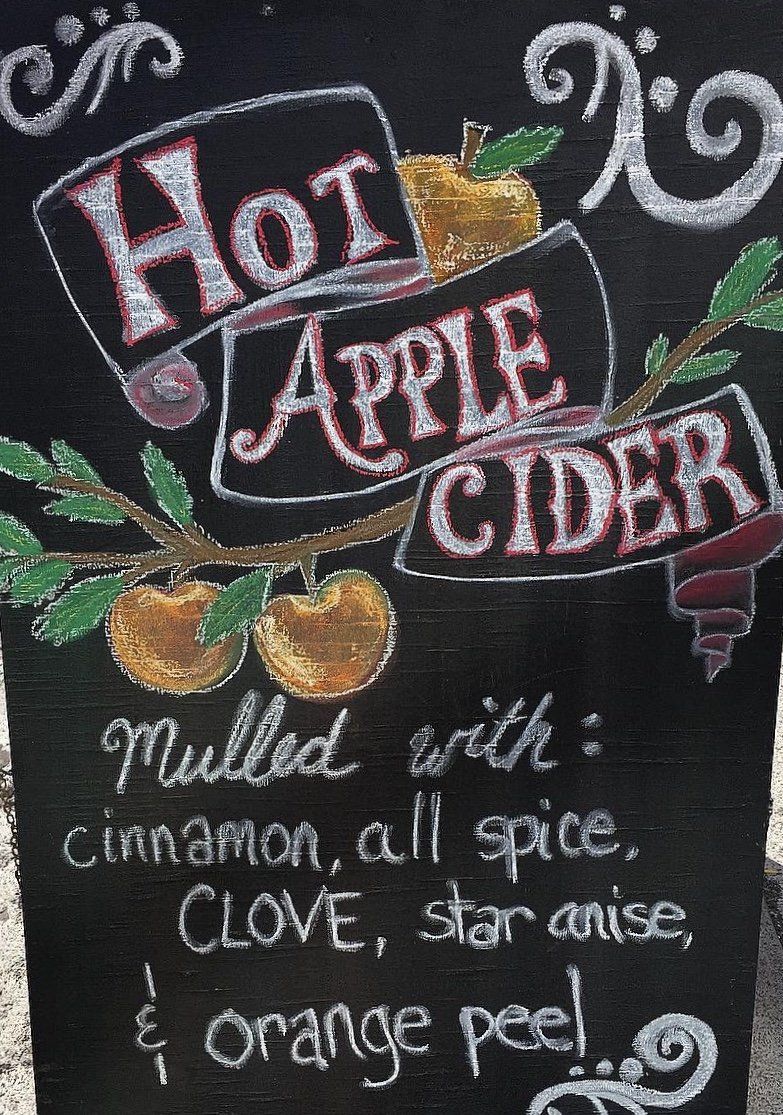 HOT
APPLE
CIDER
Mulled with:
cinnamon, all spice,
CLOVE, star anise,
& orange peel